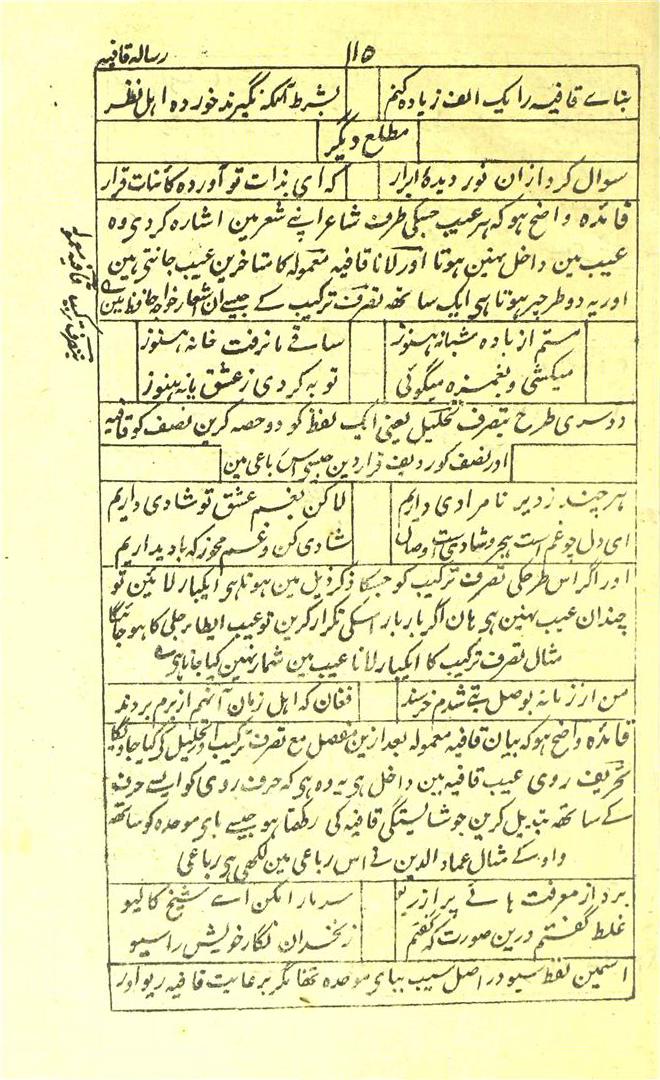 رسالہ قافیہ
۱۱۵
بناے قافیہ را یک الف زیادہ کنم بشرط آنکہ نگیرند خوردہ اہل نظر
مطلع دیگر
سوال کردم ازان نور دیدۂ ابرار کہ ای بذات تو آوردہ کائنات قرار
فائدہ واضح ہو کہ ہر عیب جسکی طرف شاعر اپنے شعر مین اشارہ کر دی وہ
عیب مین داخل نہین ہوتا اور لانا قافیہ معمولہ کا متاخرین عیب جانتی ہین
اور یہ دو طرحپر ہوتا ہی ایک ساتھہ تصرف ترکیب کے جیسے ان اشعار خواجہ حافظ مین
بتصرف ترکیب قافیہ معمولہ
مستم از بادہ شبانہ ہنوز ساقے ما نرفت خانہ ہنوز
میکشی و بغمزہ میگوئی توبہ کردی ز عشق یا نہ ہنوز
دوسری طرح بتصرف تحلیل یعنی ایک لفظ کو دو حصہ کرین نصف کو قافیہ
اور نصف کو ردیف قرار دین جیسی اس رباعی مین
ہرچند ز دیر نامرادی داریم لاکن بغم عشق تو شادی داریم
ای دل چو غم است ہجر و شادیست وصال شادی کن و غم مخور کہ بادیداریم
اور اگر اس طرحکی تصرف ترکیب کو جسکا ذکر ذیل مین ہوتا ہی ایکبار لائین تو
چندان عیب نہین ہی ہان اگر بار بار اسکی تکرار کرین تو عیب ایطاء جلی کا ہو جائیگا
مثال تصرف ترکیب کا ایکبار لانا عیب مین شمار نہین کیا جاتا ہی
من از زمانہ بوصل بتے شدم خرسند فغان کہ اہل زمان آنہم از برم بردند
فائدہ واضح ہو کہ بیان قافیہ معمولہ بعد ازین مفصل مع تصرف ترکیب و تحلیل کیا جاویگا
تحریف روی عیب قافیہ مین داخل ہی یہ وہ ہی کہ حرف روی کو ایسے حرف
کے ساتھہ تبدیل کرین جو شایستگی قافیہ کی رکھتا ہو جیسے بای موحدہ کو ساتھہ
واو کے مثال عماد الدین نے اس رباعی مین لکھی ہی رباعی
بردار معرفت ہائے پر از ریو سد بار امکن اے شیخ کالیو
غلط گفتم درین صورت کہ گفتم زنخدان نگار خویش را سیو
اسمین لفظ سیو در اصل سیب ببای موحدہ تھا مگر برعایت قافیہ ریو اور